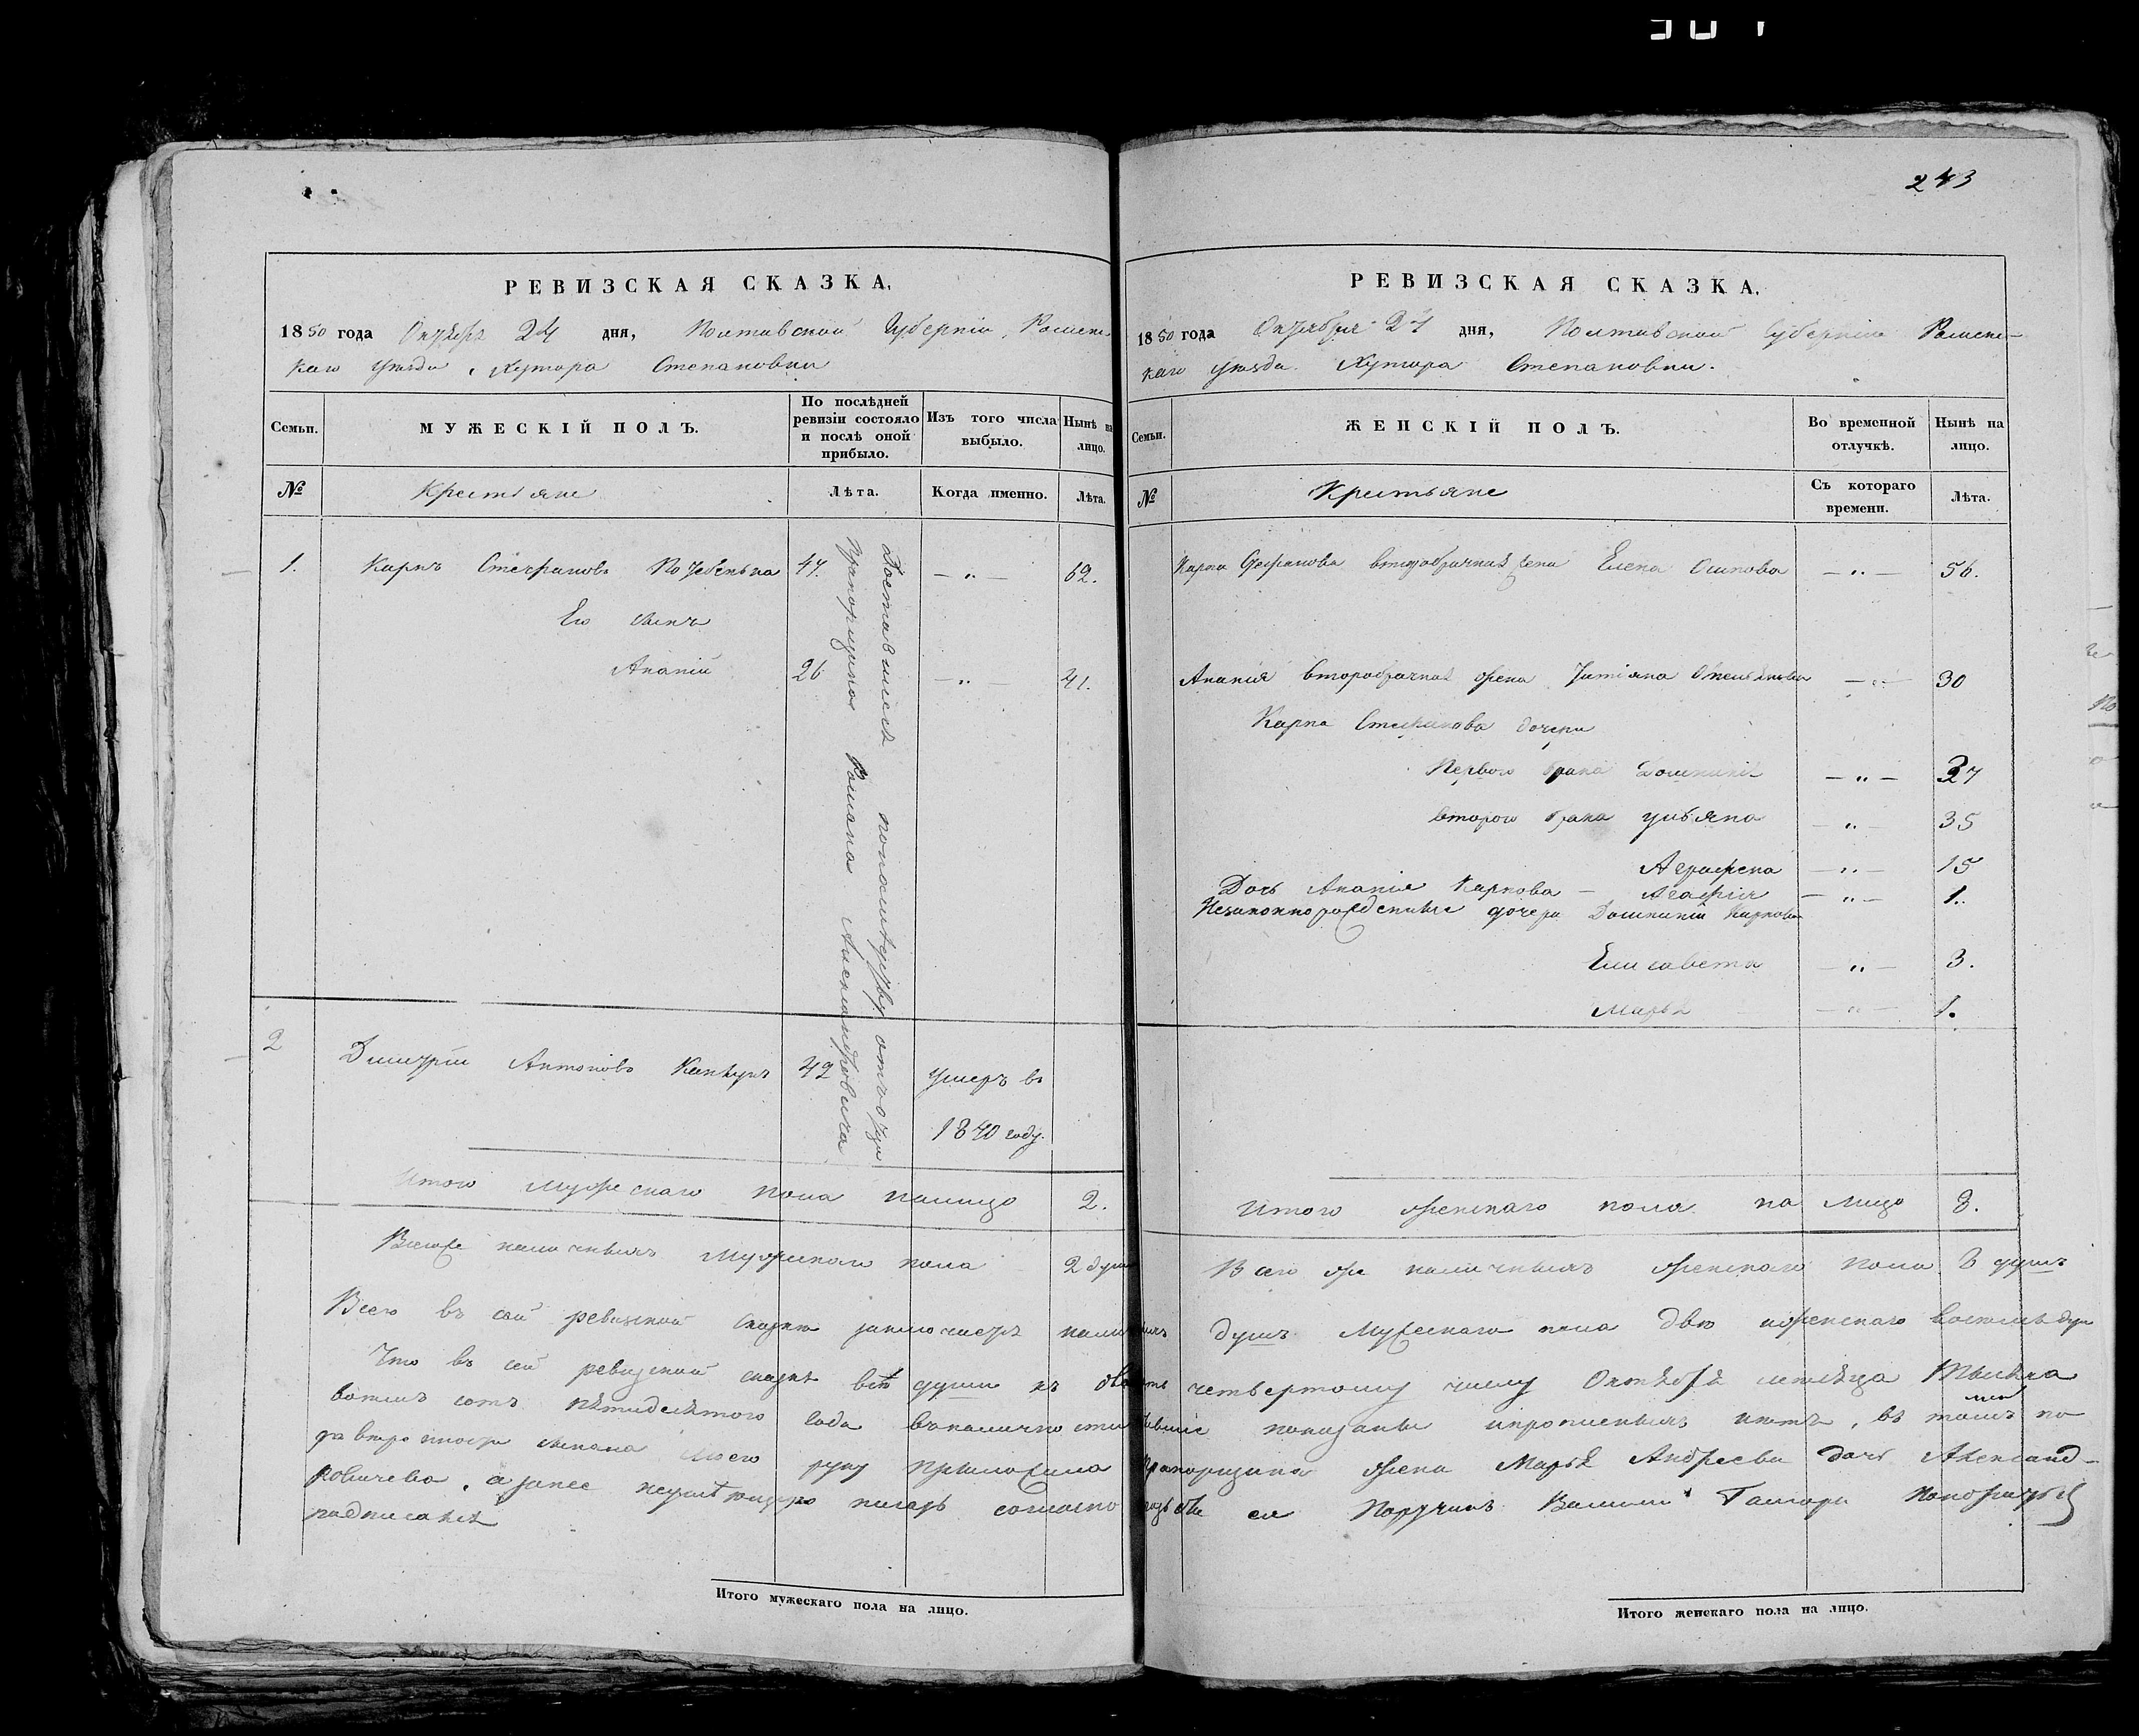 243
РЕВИЗСКАЯ СКАЗКА,
1850 года Октября 24 дня, Полтавской Губерніи, Роменс
каго уезда, Хутора Степановки
Семьи. МУЖЕСКІЙ ПОЛЪ. По послѣдней ревизіи состояло и послѣ оной прибыло. Изъ того числа выбыло. Нынѣ на лицо.
№ Крестьяне Лѣта. Когда именно. Лѣта.
1. Карпъ Стефановъ 47. — „ — 62.
Его сынъ
Ананій 26 — „ — 41.
Доставшиеся по наследству отъ отца
Прапорщика Романа Александровича
2 Дмитрій Антоновъ 42 умеръ въ
1840 году.
Итого мужескаго пола налицо 2.
Всего же наличныхъ Мужескаго пола 2 души
РЕВИЗСКАЯ СКАЗКА.
1850 года Октября 24 дня, Полтавской Губерніи Роменс-
каго уезда. Хутора Степановки.
Семьи. ЖЕНСКІЙ ПОЛЪ. Во временной отлучкѣ. Нынѣ на лицо.
№ Крестьяне Съ котораго времени. Лѣта.
Карпа Стефанова второбрачная жена Елена Осипова — „ — 56.
Ананія второбрачная жена Татіяна Омельянова — „ — 30
Карпа Стефанова дочери
Первого брака Домникія — „ — 37
второго брака Ульяна — „ — 35
Аграфена — „ — 15
Дочь Ананія Карпова — Агафія — „ — 1.
Незаконнорожденные дочери Домникіи Карповой
Елисавета — „ — 3.
Марья — „ — 1.
Итого женскаго пола на лицо 8.
Всего же наличныхъ женскаго пола 8 душъ
Всего въ сей ревизской сказке заключается наличныхъ душъ Мужескаго пола две и женскаго восемь душ
Что въ сей ревизской сказке все души къ двадцать четвертому числу Октября месяца Тысяча
восемь сотъ пятидесятого года въ наличности бывшие показаны и прописныхъ нетъ, въ томъ по
руку приложила Прапорщика жена Марья Андреева дочь Александ-
ровичева, а за нее неумеющую писать согласно прозьбе ея Поручикъ
подписался
Итого мужескаго пола на лицо.
Итого женскаго пола на лицо.